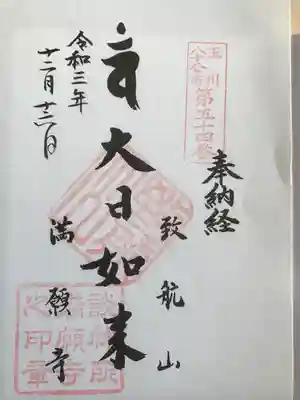 玉川
八十八ヶ所
第五十四番
奉納経
致航山
大日如来
満願寺
令和三年
十二月
満願寺
之印章